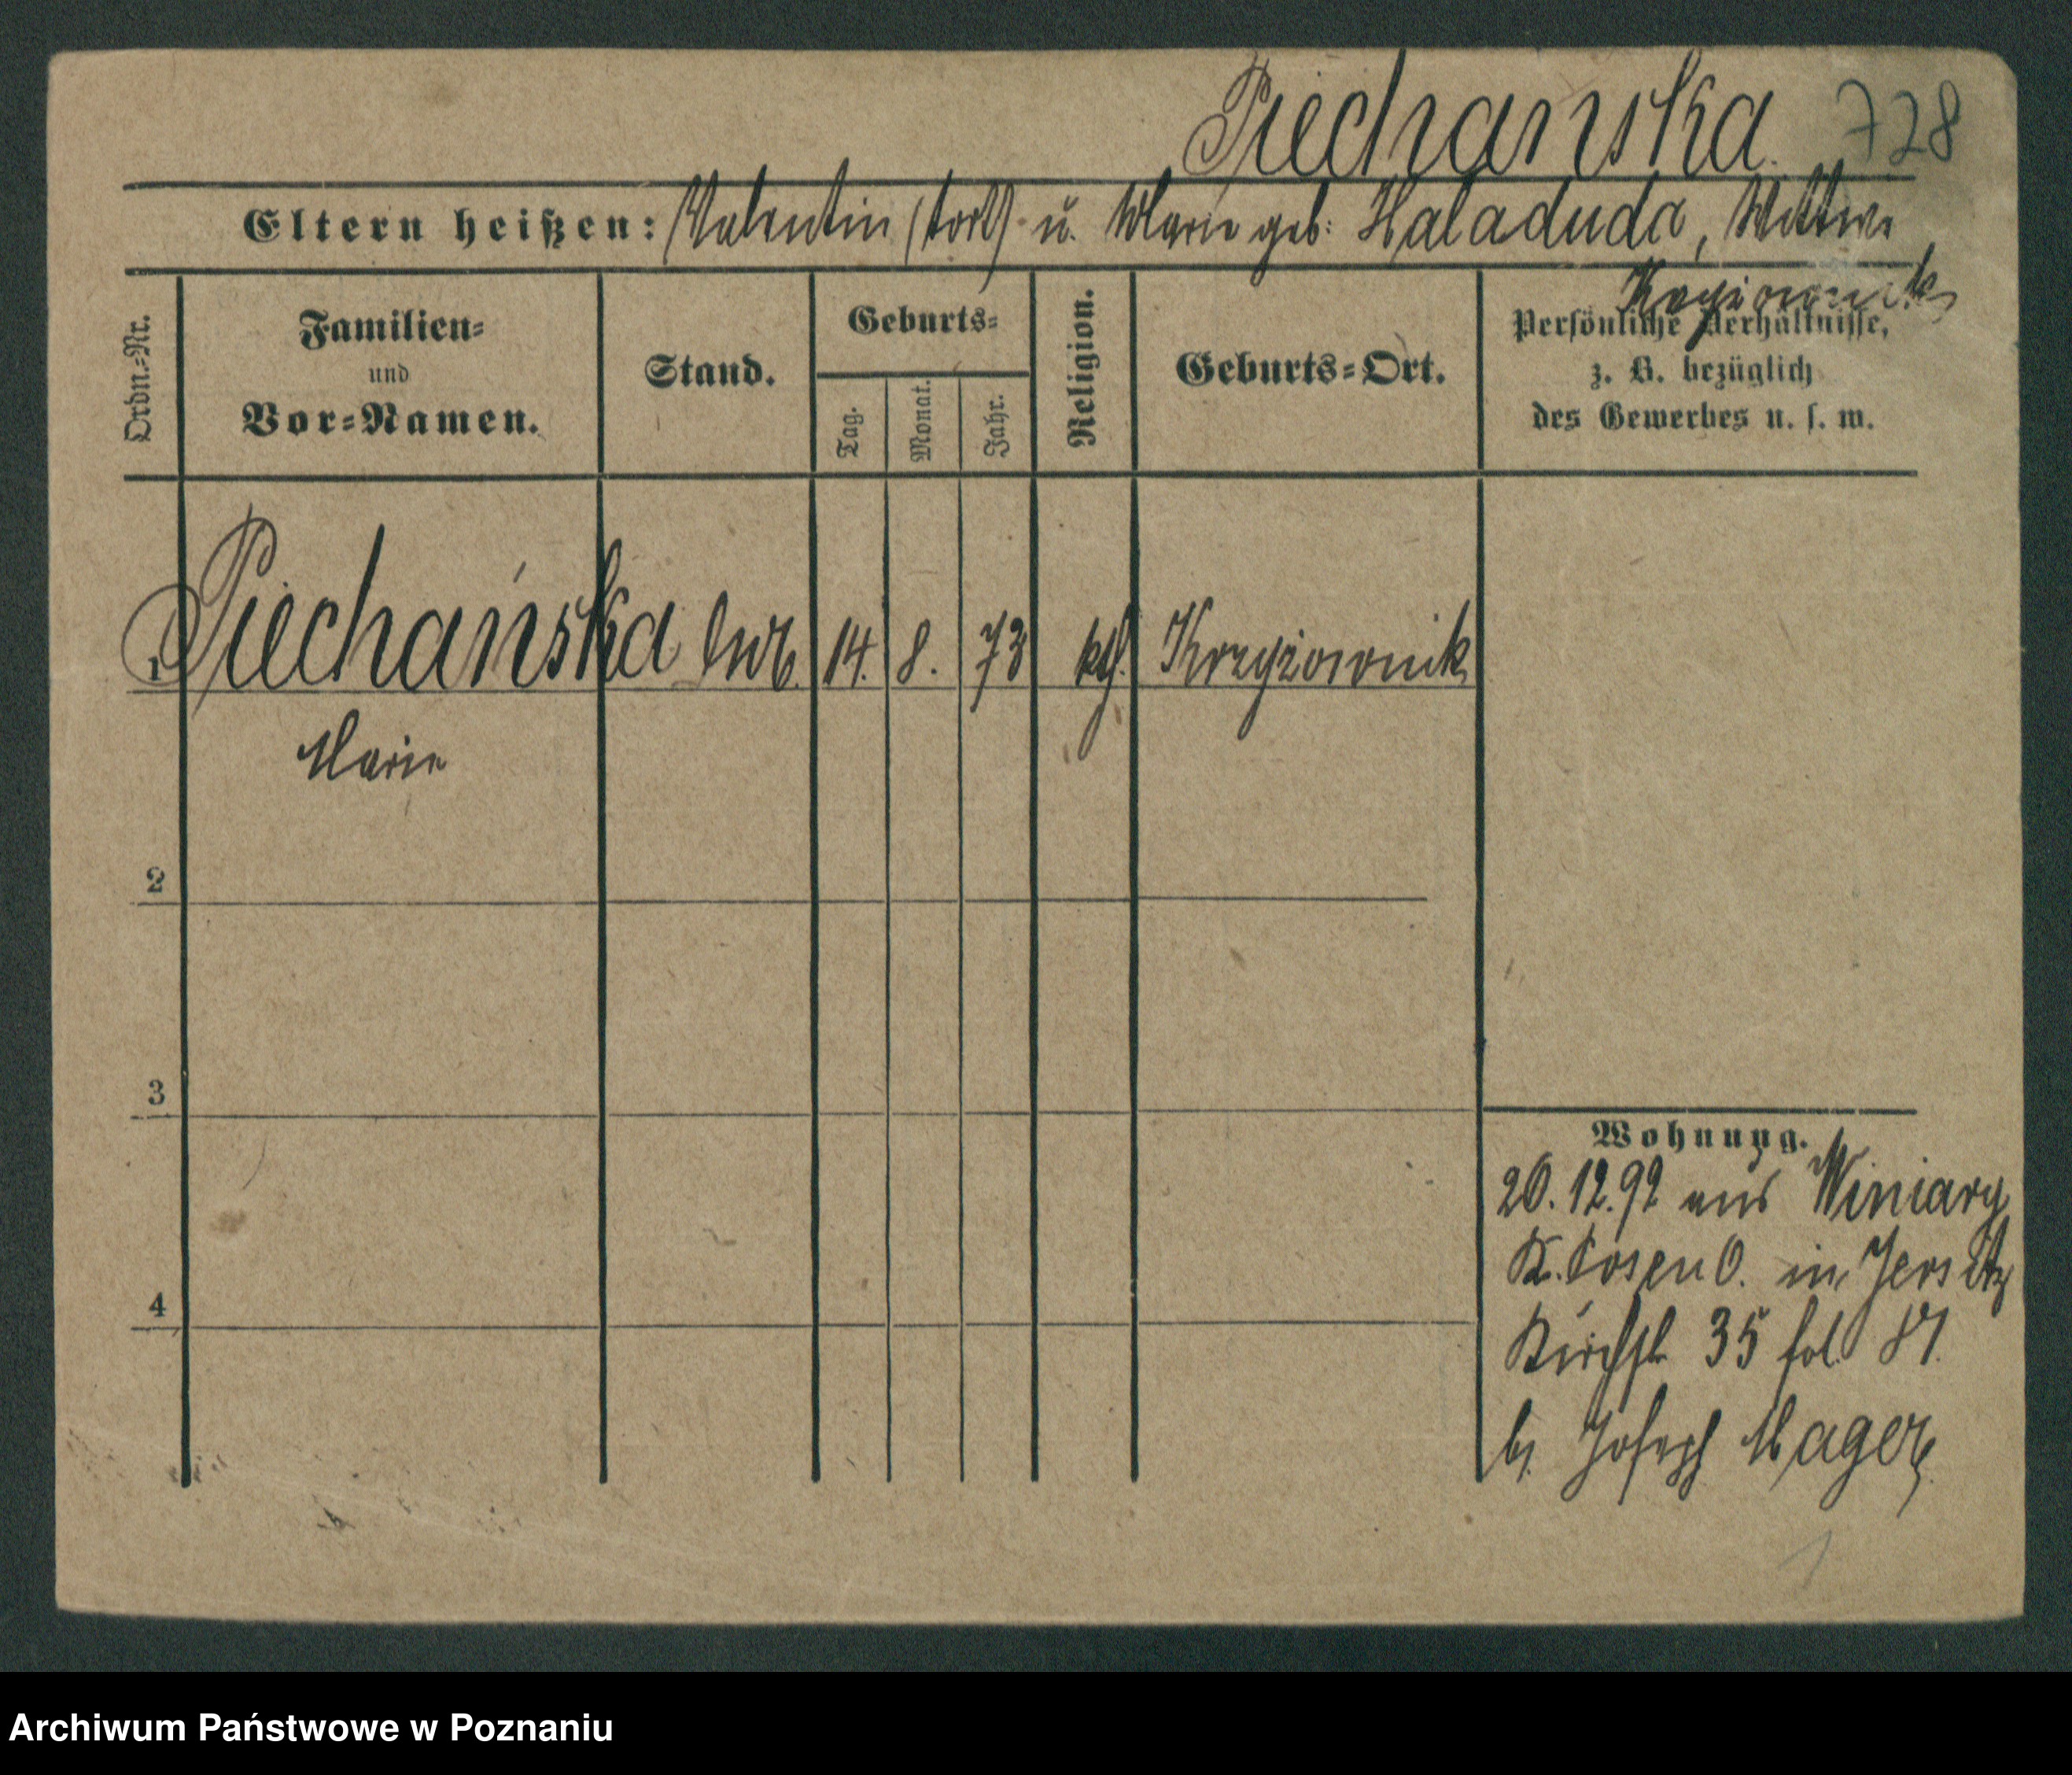 Piechańska. 728
Eltern heißen: Valentin (todt) u. Marie geb: Haladuda, Wittwe
Krzyżownik
Ordn.=Nr.
Familien=
und
Vor=Namen.
Stand.
Geburts=
Tag.
Monat.
Jahr.
Religion.
Geburts=Ort.
Persönliche Verhältnisse,
z. B. bezüglich
des Gewerbes u. s. w.
1 Piechańska 14. 8. 73 kth. Krzyżownik
Marie
2
3
4
Wohnung.
20.12.92 aus Winiary
K. Posen O. in Jersitz
Kirchstr 35 fol. 87.
b. Joseph Mager
1
Archiwum Państwowe w Poznaniu